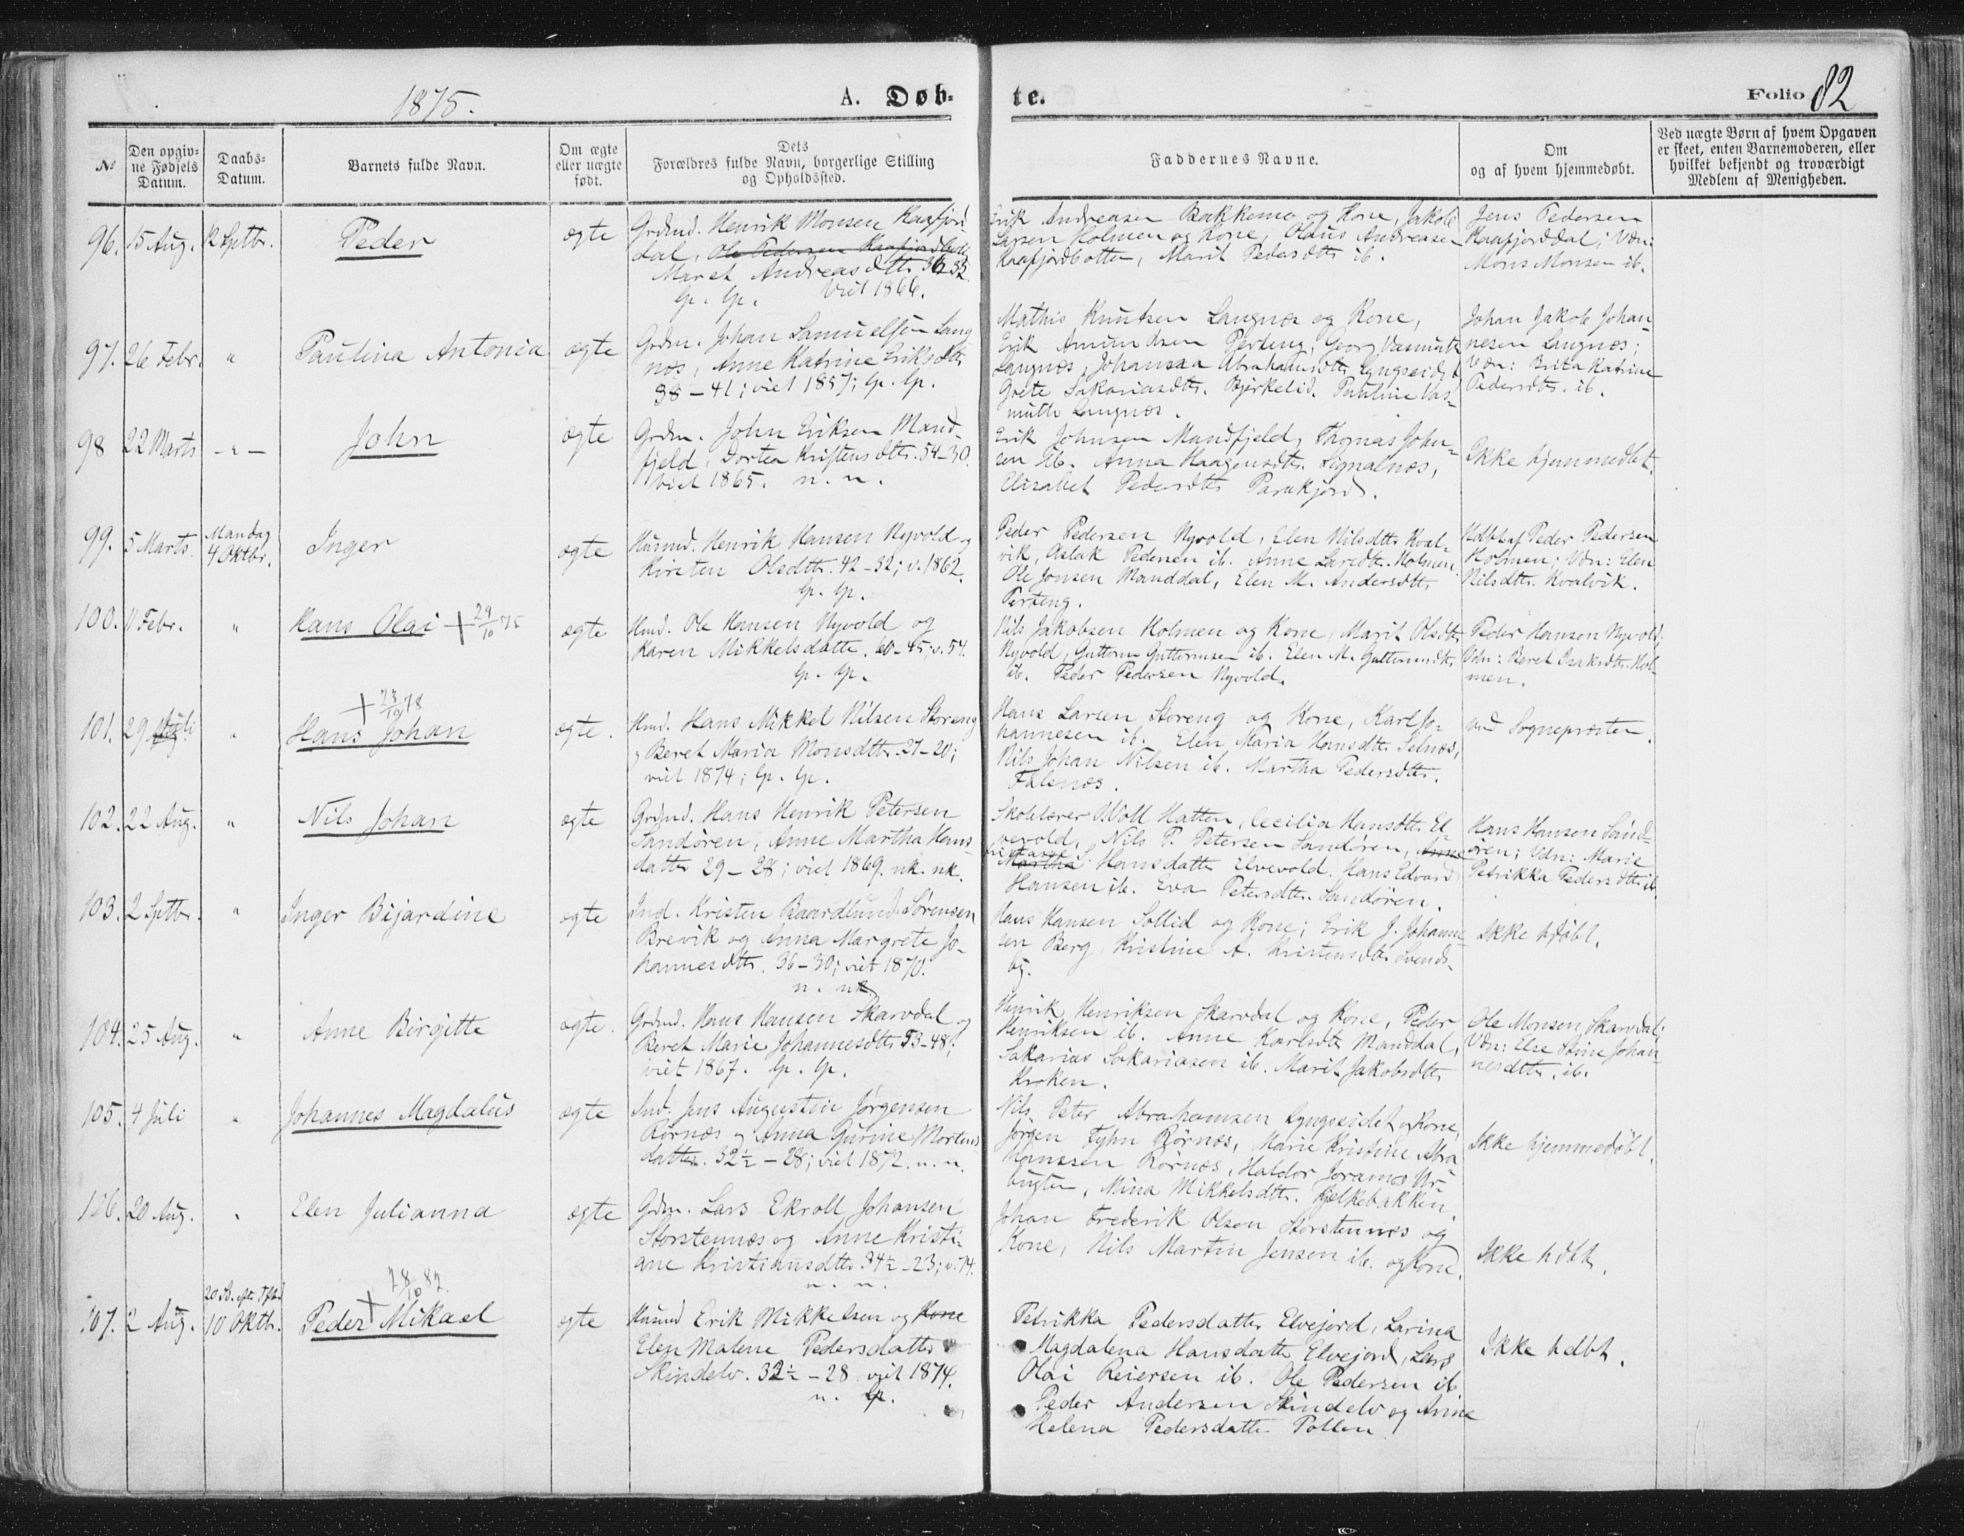 1875.
A. Døb-
te.
Folio 82
№
Den opgiv-
ne Fødsels
Datum.
Daabs-
Datum.
Barnets fulde Navn.
Om ægte
eller uægte
født.
Dets
Forældres fulde Navn, borgerlige Stilling
og Opholdssted.
Faddernes Navne.
Om
og af hvem hjemmedøbt.
Ved uægte Børn af hvem Opgaven
er skeet, enten Barnemoderen, eller
hvilket bekjendt og troværdigt
Medlem af Menigheden.
96. 15 Aug. 12 Septbr.
Peder
ægte
Grdmd. Henrik Monsen Kaafjord
dal, Ole Pedersen Kaafjordbotn
Maret Andreasdttr. 36-35
lp. lp. viet 1866.
Erik Andreasen Bakkemo og Kone, Jakob
Larsen Holmen og Kone, Olaus Andreasen
Kaafjordbotten, Marit Pedersdttr. ib.
Jens Pedersen
Kaafjorddal; Vdn:
Mons Monsen ib.
97. 26 Febr. "
Paulina Antonia
ægte
Grdm. Johan Samuelsen Lang
næs, Anne Katrine Eriksdttr.
38-41; viet 1857; lp. lp.
Mathis Knutsen Langnæs og Kone,
Erik Amundsen Perteng, Georg Vasmuth
Langnæs, Johanna Abrahamsdttr. Lyngseidet
Grete Sakariasdttr. Bjerkelid. Pauline Vas-
muth Langnæs.
Johan Jakob Johan-
nesen Langnæs;
Vdn: Brita Katrine
Pedersdttr. ib.
98 22 Marts -"-
John
ægte
Grdm. John Eriksen Mand-
fjeld, Dortea Kristensdttr. 54-30.
viet 1865. n. n.
Erik Johnsen Mandfjeld, Thomas John-
sen ib. Anna Haagensdttr. Signalnæs,
Elisabet Pedersdttr Parakjord.
Ikke hjemmedbt.
99. 5 Marts. Mandag
4 Oktbr.
Inger
ægte
Husmd. Henrik Hansen Nyvold og
Kirsten Olsdttr. 42-32; v. 1862.
lp. lp.
Peder Pedersen Nyvold, Elen Nilsdttr. Kval-
vik, Aslak Pedersen ib. Anne Larsdttr. Holmen
Ole Jonsen Manddal, Elen M. Andersdttr.
Perteng.
Hdbt af Peder Pedersen
Holmen; Vdn: Elen
Nilsdttr. Kvalvik.
100. 11 Febr. "
Hans Olai + 29/10 75
ægte
Hmd. Ole Hansen Nyvold og
Karen Mikkelsdatte. 60-45; v. 54.
lp. lp.
Nils Jakobsen Holmen og Kone, Marit Olsdttr
Nyvold, Guttorm Guttormsen ib. Elen M. Guttormsdttr.
ib. Peder Pedersen Nyvold.
Peder Hansen Nyvold;
Vdn: Beret Isaksdttr. Hol-
men.
101. 29 Juli "
+ 23/10 78
Hans Johan
ægte.
Hmd. Hans Mikkel Nilsen Storeng
og Beret Maria Monsdttr. 27-20;
viet 1874; lp. lp.
Hans Larsen Storeng og Kone, Karl Jo-
hannesen ib. Elen Maria Hansdttr. Selnæs,
Nils Johan Nilsen ib. Martha Pedersdttr.
Falsnæs.
ved Sognepræsten.
102. 22 Aug. "
Nils Johan
ægte
Grdmd. Hans Henrik Petersen
Sandøren, Anne Martha Hans-
datter 29-28; viet 1869. nk. nk.
Skolelærer Woll Hatten, Cecilia Hansdttr. El-
vevold, Nils P. Petersen Sandøren, Anne
Martha Hansdatte Elvevold. Hans Edvard
Hansen ib. Eva Petersdttr. Sandøren.
Hans Hansen Sand-
øren; Vdn: Marie
Petrikka Pedersdttr ib.
103. 2 Septbr. "
Inger Bijardine
ægte
Ind. Kristen Baardlund Sørensen
Brevik og Anna Margrete Jo-
hannesdttr. 36-30; viet 1870.
n. nk
Hans Hansen Sollid og Kone; Erik J. Johanne
sen Berg, Kristine A. Kristensdttr. Svends-
by.
Ikke hdøbt.
104. 25 Aug. "
Anne Birgitte
ægte.
Grdmd. Hans Hansen Skarvdal og
Beret Marie Johannesdttr. 53-48;
viet 1867. lp. lp.
Henrik Henriksen Skarvdal og Kone, Peder
Henriksen ib. Anne Karlsdttr. Manddal,
Sakarias Sakariasen ib. Marit Jakobsdttr
Kroken.
Ole Monsen Skarvdal;
Vdn: Else Stine Johan-
nesdttr. ib.
105. 4 Juli "
Johannes Magdalus
ægte
Ind. Jens Augustin Jørgensen
Rørnæs og Anna Gurine Mortens
datter. 32½-28; viet 1872. n. n.
Nils Peter Abrahamsen Lyngseidet og Kone,
Jørgen Fyhn Rørnæs, Marie Kristine Abra
hamsen Rørnæs, Haldor Joramo Ur-
bugten, Mina Mikkelsdttr. Kjelkebakken.
Ikke hjemmedøbt.
106. 20 Aug. "
Elen Julianna
ægte
Grdm. Lars Ekroll Johansen
Storstennæs og Anne Kristi-
ane Kristiansdttr. 34½-23; v. 74.
n. n.
Johan Frederik Olsen Storstennæs og
Kone, Nils Martin Jensen ib. og Kone.
Ikke hdbt.
107. 2 Aug. 20 S. eftr. Tftd
10 Oktbr.
+ 28/10 82.
Peder Mikael
ægte
Husmd Erik Mikkelsen og Kone
Elen Malene Pedersdatter
Skindelv. 32½-28 viet 1874.
n. lp.
Petrikka Pedersdatter Elvejord, Larina
Magdalena Hansdatte Elvejord, Lars
Olai Reiersen ib. Ole Pedersen ib.
Peder Andersen Skindelv og Anne
Helena Pedersdatte Pollen.
Ikke hdbt.